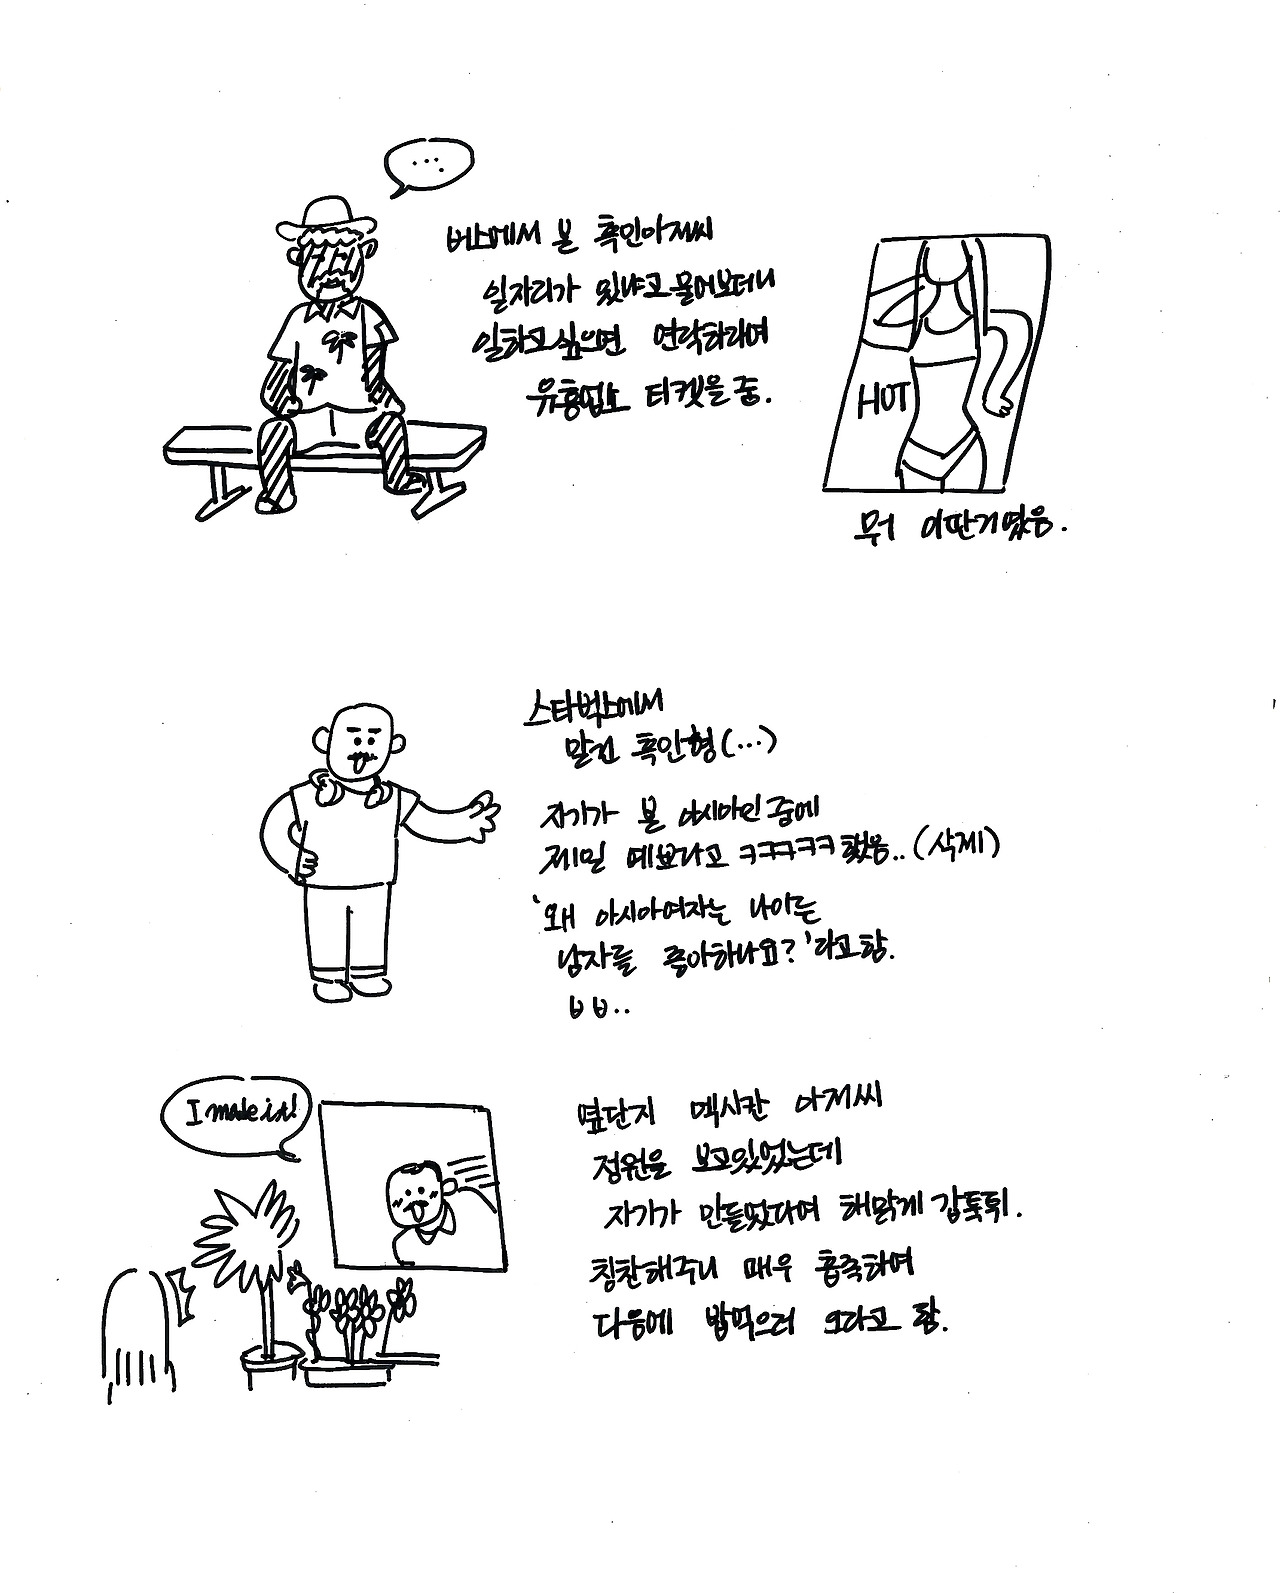 ...
버스에서 본 흑인아저씨
일자리가 있냐고 물어보더니
일하고싶으면 연락하라며
유흥업소 티켓을 줌.
HOT
뭐 이딴거였음.
스타벅스에서
말건 흑인형(...)
자기가 본 아시아인중에
제일 예쁘다고 ㅋㅋㅋㅋㅋ했음..(삭제)
'왜 아시아여자는 나이든
남자를 좋아하나요?'라고함.
ㅂㅂ..
I made it!
옆단지 멕시칸 아저씨
정원을 보고있었는데
자기가 만들었다며 해맑게 갑툭튀.
칭찬해주니 매우 흡족하며
다음에 밥먹으러 오라고 함.